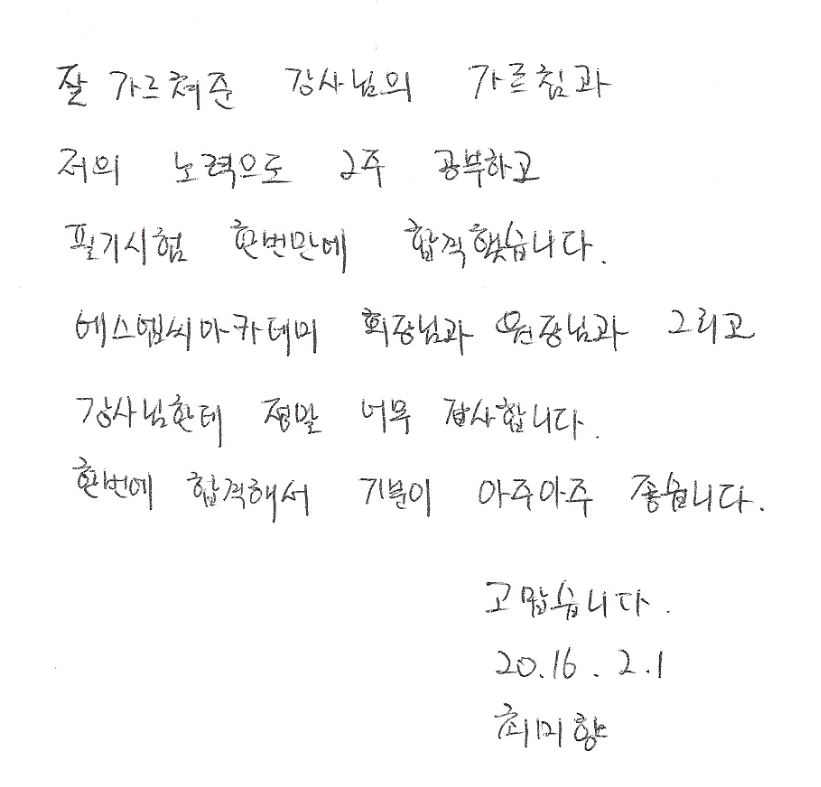 잘 가르쳐준 강사님의 가르침과
저의 노력으로 2주 공부하고
필기시험 한번만에 합격했습니다.
에스엠씨아카데미 회장님과 원장님과 그리고
강사님한테 정말 너무 감사합니다.
한번에 합격해서 기분이 아주아주 좋습니다.
고맙습니다.
20.16 . 2.1
최미향